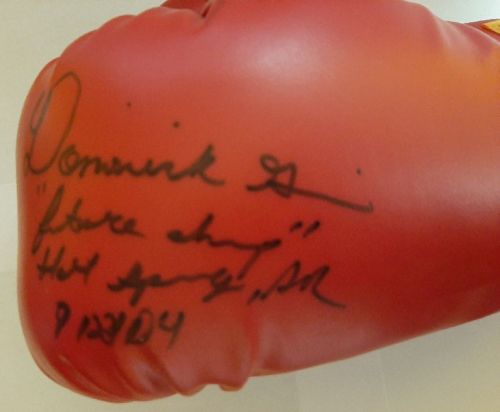 Dominick Gui
"future champ"
Hot Springs, AR
9/23/04